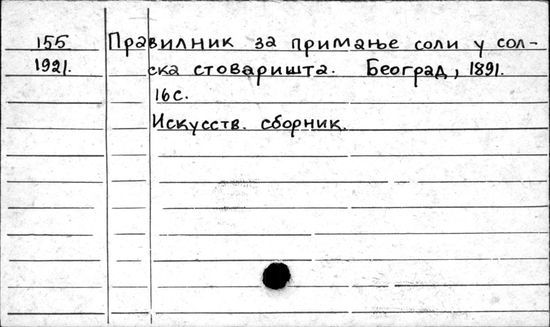 155 Правилник за примање соли у сол-
1921. ска стоваришта. Београд, 1891.
16 с.
Искусств. сборник.